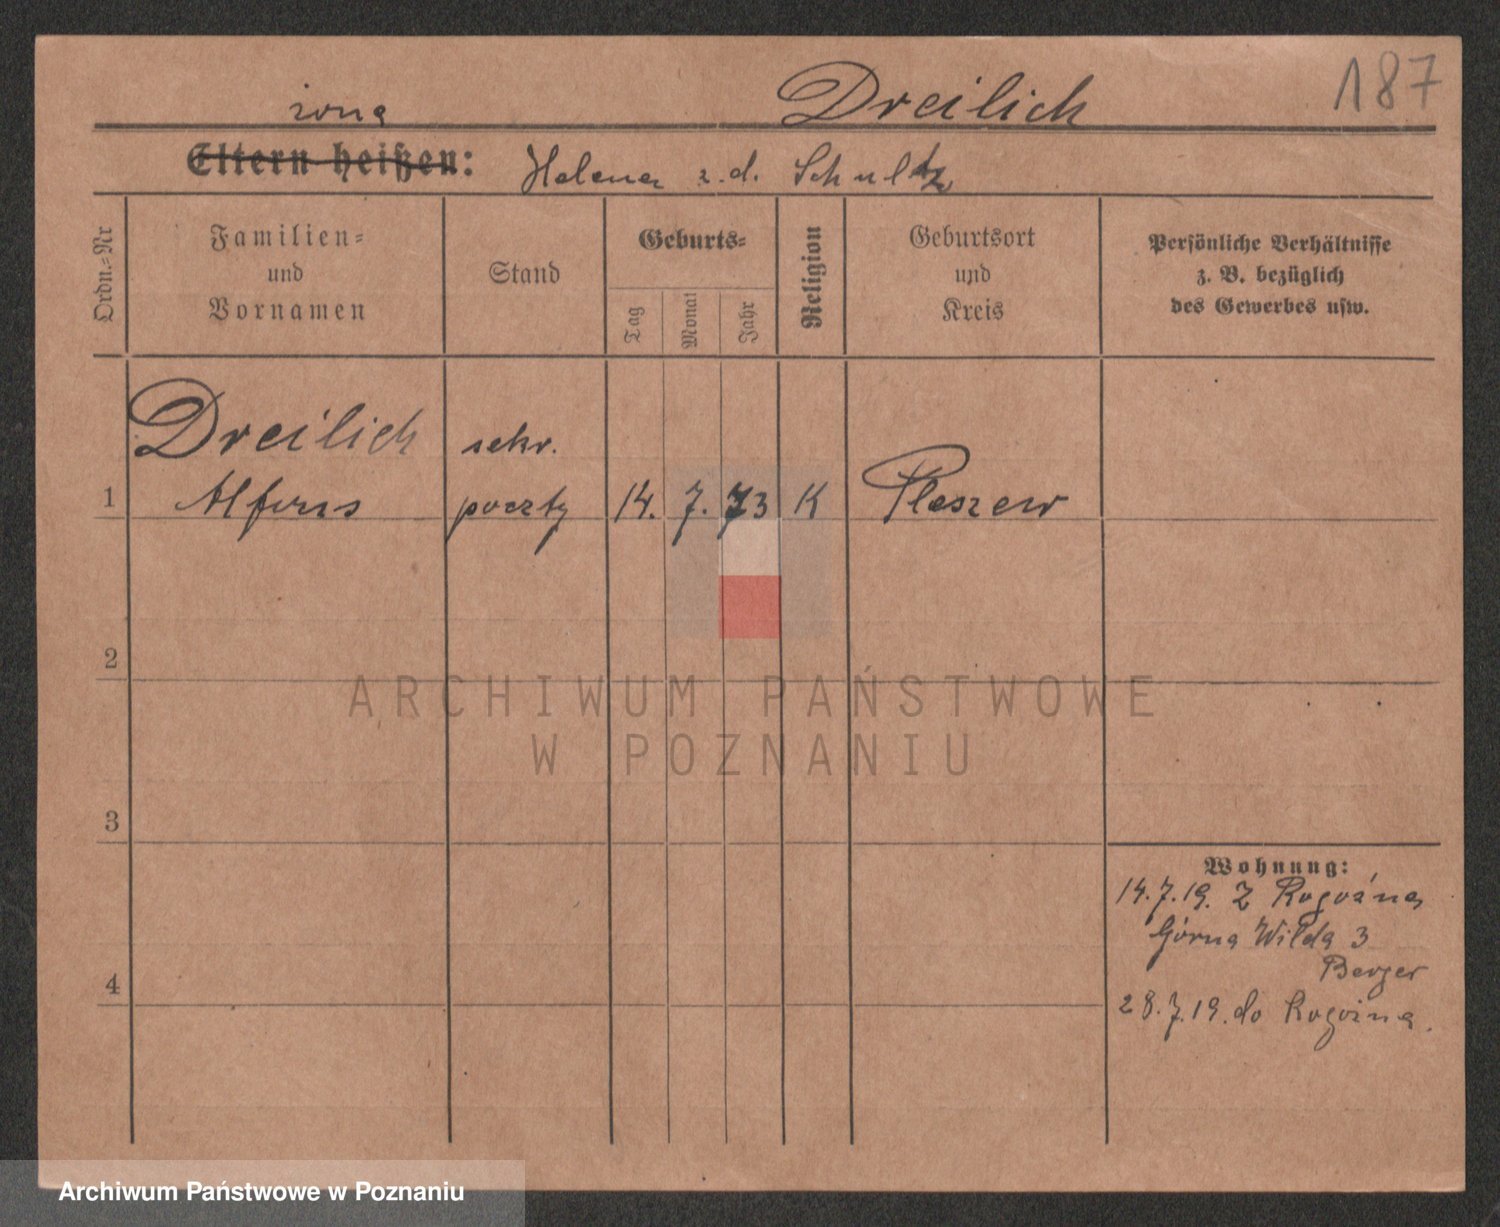 187
żona Dreilich
Eltern heißen: Helena z.d. Schultz
Ordn.=Nr
Familien=
und
Vornamen
Stand
Geburts=
Tag
Monat
Jahr
Religion
Geburtsort
und
Kreis
Persönliche Verhältnisse
z. B. bezüglich
des Gewerbes usw.
Dreilich sekr.
1 Alfons poczty 14. 7. 73 K Pleszew
2
ARCHIWUM PAŃSTWOWE
W POZNANIU
3
Wohnung:
14.7.19. Z Rogoźna
Górna Wilda 3
Berger
4
28.7.19. do Rogoźna.
Archiwum Państwowe w Poznaniu